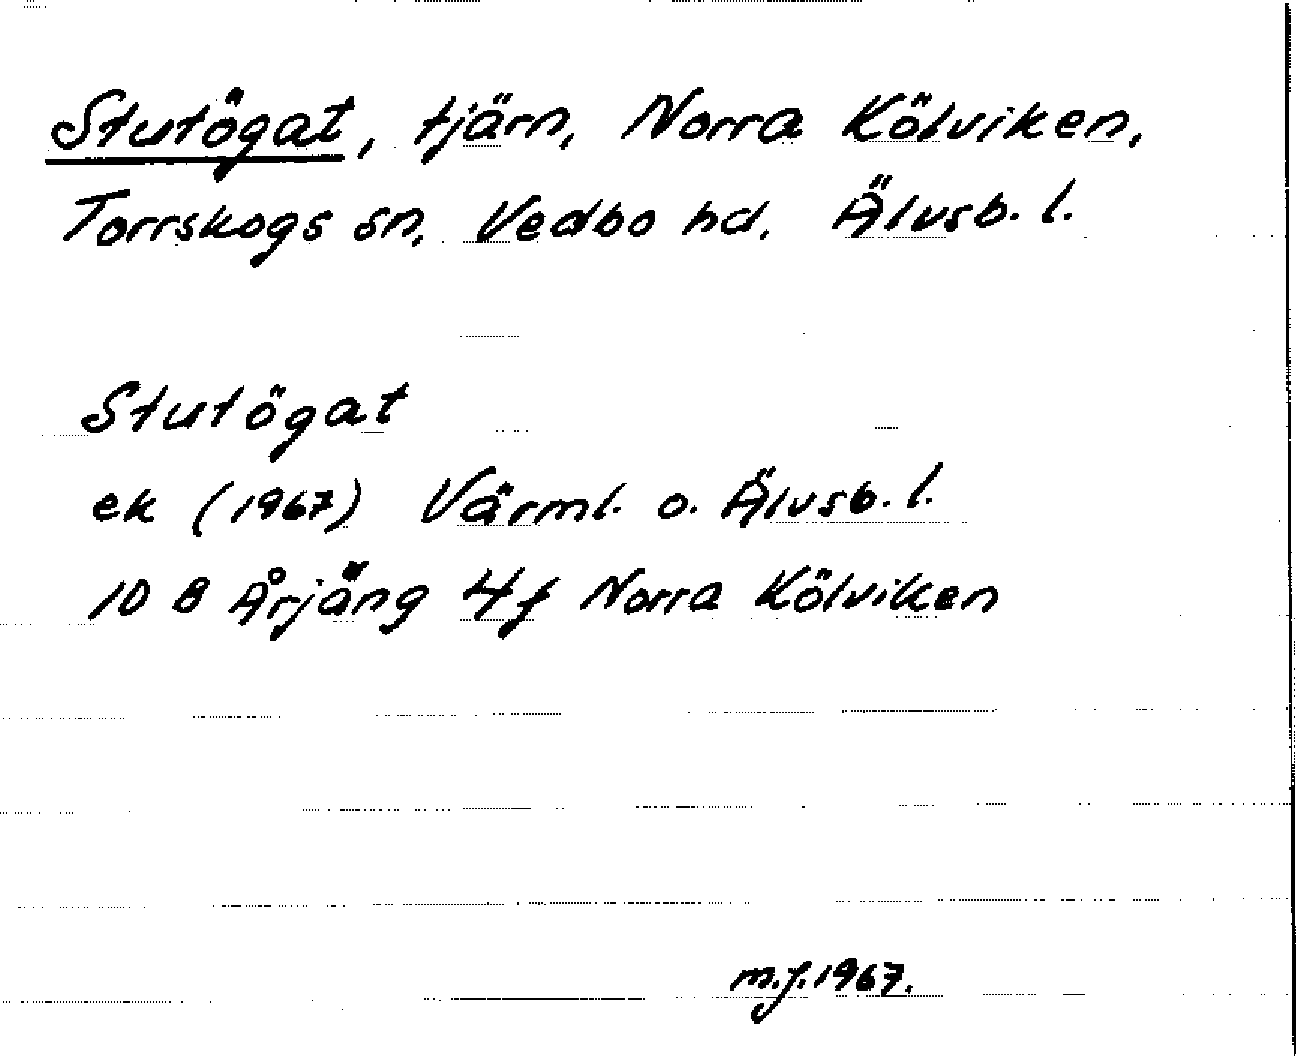 Stutögat, tjärn, Norra Kölviken,
Torrskogs sn, Vedbo hd, Älvsb. l.
Stutögat
ek (1967) Värml. o. Älvsb. l.
10 B Årjäng 4f Norra Kölviken
m.j. 1967.